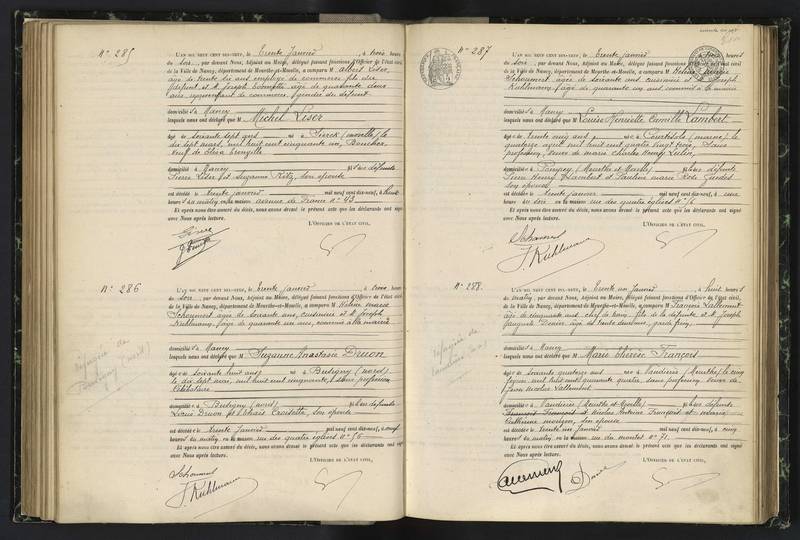 N° 285
L'AN MIL NEUF CENT DIX-NEUF, le trente janvier, à trois heures
du soir, par devant Nous, Adjoint au Maire, délégué faisant fonctions d'Officier de l'état civil,
de la Ville de Nancy, département de Meurthe-et-Moselle, a comparu M. Albert Liser,
âgé de trente six ans employé de commerce fils du
défunt et M. Joseph âgé de quarante deux
ans représentant de commerce, gendre du défunt
domiciliés à Nancy
lesquels nous ont déclaré que M Michel Liser
âgé de soixante sept ans né à Sierck (moselle) le
dix sept mars, mil huit cent cinquante un, Boucher,
veuf de
domicilié à Nancy fils des défunts
Pierre Liser et Suzanne Ritz, son épouse
est décédé le trente janvier mil neuf cent dix-neuf, à huit
heures du matin, en sa maison avenue de France n° 43
Et après nous être assuré du décès, nous avons dressé le présent acte que les déclarants ont signé
avec Nous après lecture.
L'OFFICIER DE L'ÉTAT CIVIL,
Liser
N° 286
L'AN MIL NEUF CENT DIX-NEUF, le trente janvier, à trois heures
du soir, par devant Nous, Adjoint au Maire, délégué faisant fonctions d'Officier de l'état civil,
de la Ville de Nancy, département de Meurthe-et-Moselle, a comparu M. Hélène
Schoumert âgée de soixante ans, cuisinière et M. Joseph
Kuhlmann, âgé de quarante un ans, commis à la mairie
domiciliés à Nancy
lesquels nous ont déclaré que M Suzanne Anastasie Druon
âgée de soixante huit ans née à Busigny (nord)
le dix sept mai, mil huit cent cinquante, sans profession
célibataire
domiciliée à Busigny (nord) fille des défunts
Louis Druon et Croisette, son épouse
est décédée le trente janvier mil neuf cent dix-neuf, à neuf
heures du matin, en sa maison rue des quatre églises n° 56
Et après nous être assuré du décès, nous avons dressé le présent acte que les déclarants ont signé
avec Nous après lecture.
L'OFFICIER DE L'ÉTAT CIVIL,
Schoumert
J. Kuhlmann
réfugiée de
Busigny (nord)
N° 287
L'AN MIL NEUF CENT DIX-NEUF, le trente janvier, à trois heures
du soir, par devant Nous, Adjoint au Maire, délégué faisant fonctions d'Officier de l'état civil,
de la Ville de Nancy, département de Meurthe-et-Moselle, a comparu M. Hélène
Schoumert âgée de soixante ans, cuisinière et M. Joseph
Kuhlmann, âgé de quarante un ans commis à la mairie
domiciliés à Nancy
lesquels nous ont déclaré que M Louise Henriette Camille Lambert
âgée de trente cinq ans, née à Courtisols (marne) le
quatorze août mil huit cent quatre vingt trois, sans
profession, veuve de marie Charles Henry
domiciliée à Pompey (Meurthe et Moselle) fille des défunts
Pierre Henry Lambert et Pauline marie Rose
son épouse
est décédée le trente janvier mil neuf cent dix-neuf, à une
heure du soir, en sa maison rue des quatre églises n° 56
Et après nous être assuré du décès, nous avons dressé le présent acte que les déclarants ont signé
avec Nous après lecture.
L'OFFICIER DE L'ÉTAT CIVIL,
Schoumert
J. Kuhlmann
N° 288
L'AN MIL NEUF CENT DIX-NEUF, le trente un janvier, à huit heures
du matin, par devant Nous, Adjoint au Maire, délégué faisant fonctions d'Officier de l'état civil,
de la Ville de Nancy, département de Meurthe-et-Moselle, a comparu M. François Lallement
âgé de cinquante ans chef de train, fils de la défunte et M. Joseph
Auguste Denis âgé de trente deux ans, garde frein,
domiciliés à Nancy
lesquels nous ont déclaré que M Marie Thérèse François
âgée de soixante quatorze ans née à Vandières (Meurthe) le cinq
février mil huit cent quarante quatre, sans profession, veuve de
Jean Nicolas Lallement
domiciliée à Vandières (Meurthe et Moselle) fille des défunts
Nicolas Antoine François et marie
Catherine son épouse
est décédée le trente un janvier mil neuf cent dix-neuf, à cinq
heures du matin, en sa maison rue du montet n° 71
Et après nous être assuré du décès, nous avons dressé le présent acte que les déclarants ont signé
avec Nous après lecture.
L'OFFICIER DE L'ÉTAT CIVIL,
Lallement
réfugiée de
Vandières